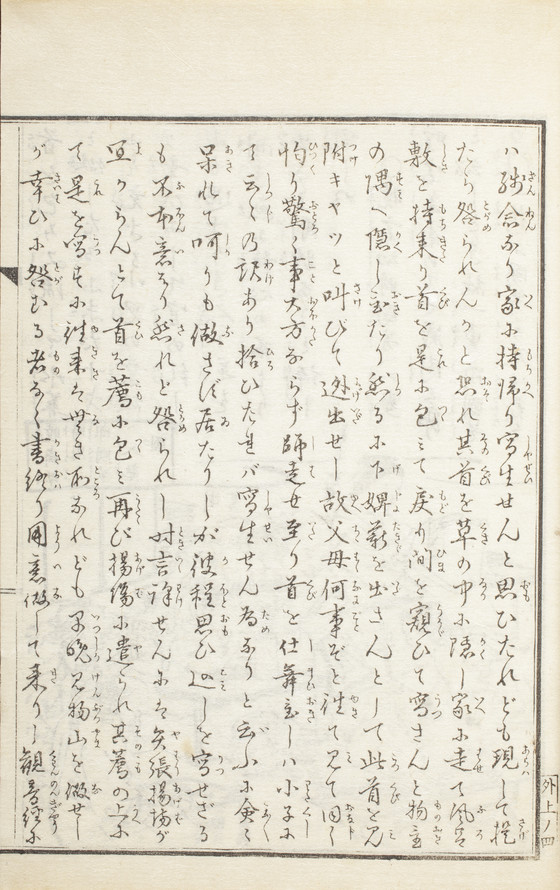 ハ残念なり家に持帰り写生せんと思ひたれども現して提
たら咎られんかと思れ其首を草の中に隠し家に走て風呂
敷を持来り首を是に包ミて戻り間を窺ひて写さんと物置
の隅へ隠し置たり然るに下婢薪を出さんとして此首を見
附キヤツと叫びて逃出せし故父母何事ぞと往て見て同く
恟り驚く事大方ならず師走せ至り首を仕舞置しハ小子に
て云々の訳あり拾ひたれバ写生せん為なりと云ふに
呆れて呵りも做さず居たりしが彼程思ひ込しを写せざる
も不本意なり然れど咎られし時言訳せんには矢張揚場が
宜からんとて首を薦に包ミ再び揚場に遣られ其薦の上に
て是を写すに往来は無き所なれども早晩見物山を做せし
が幸ひに咎むる者なく書終り用意做して来りし観音経に
外上ノ四